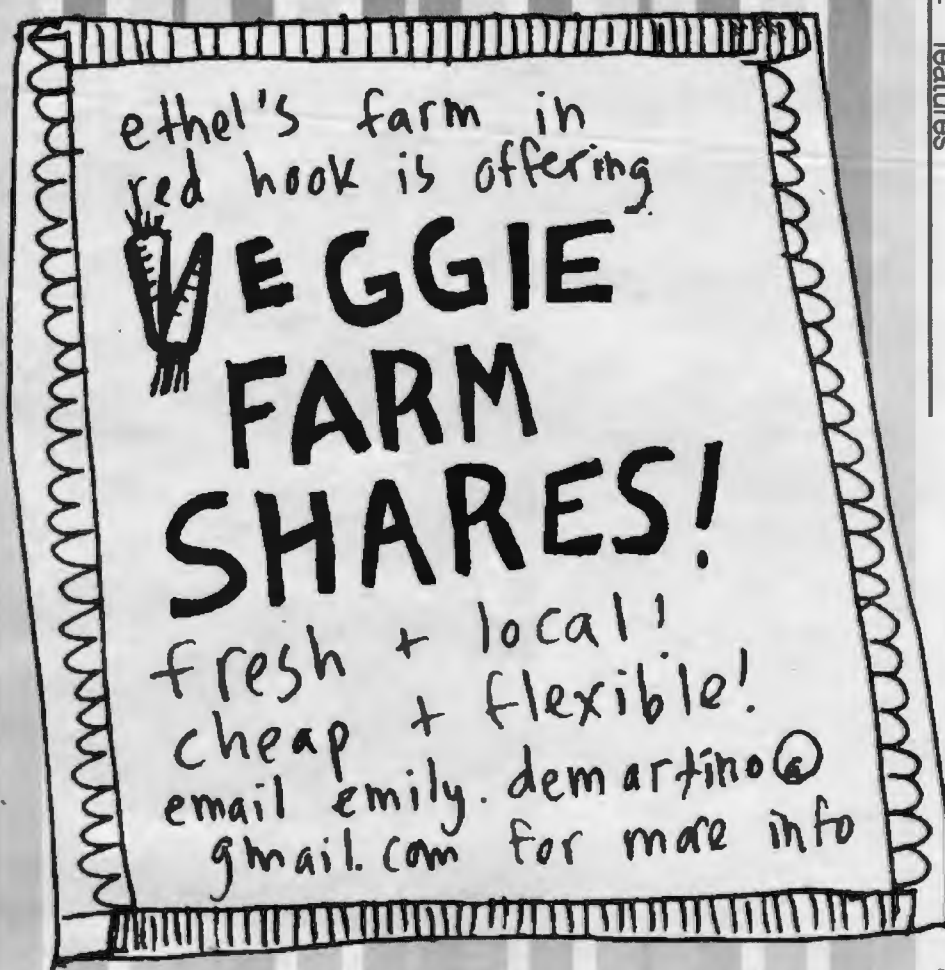 features
ethel's farm in
red hook is offering
VEGGIE
FARM
SHARES!
fresh + local!
cheap + flexible!
email emily.demartino@
gmail.com for more info